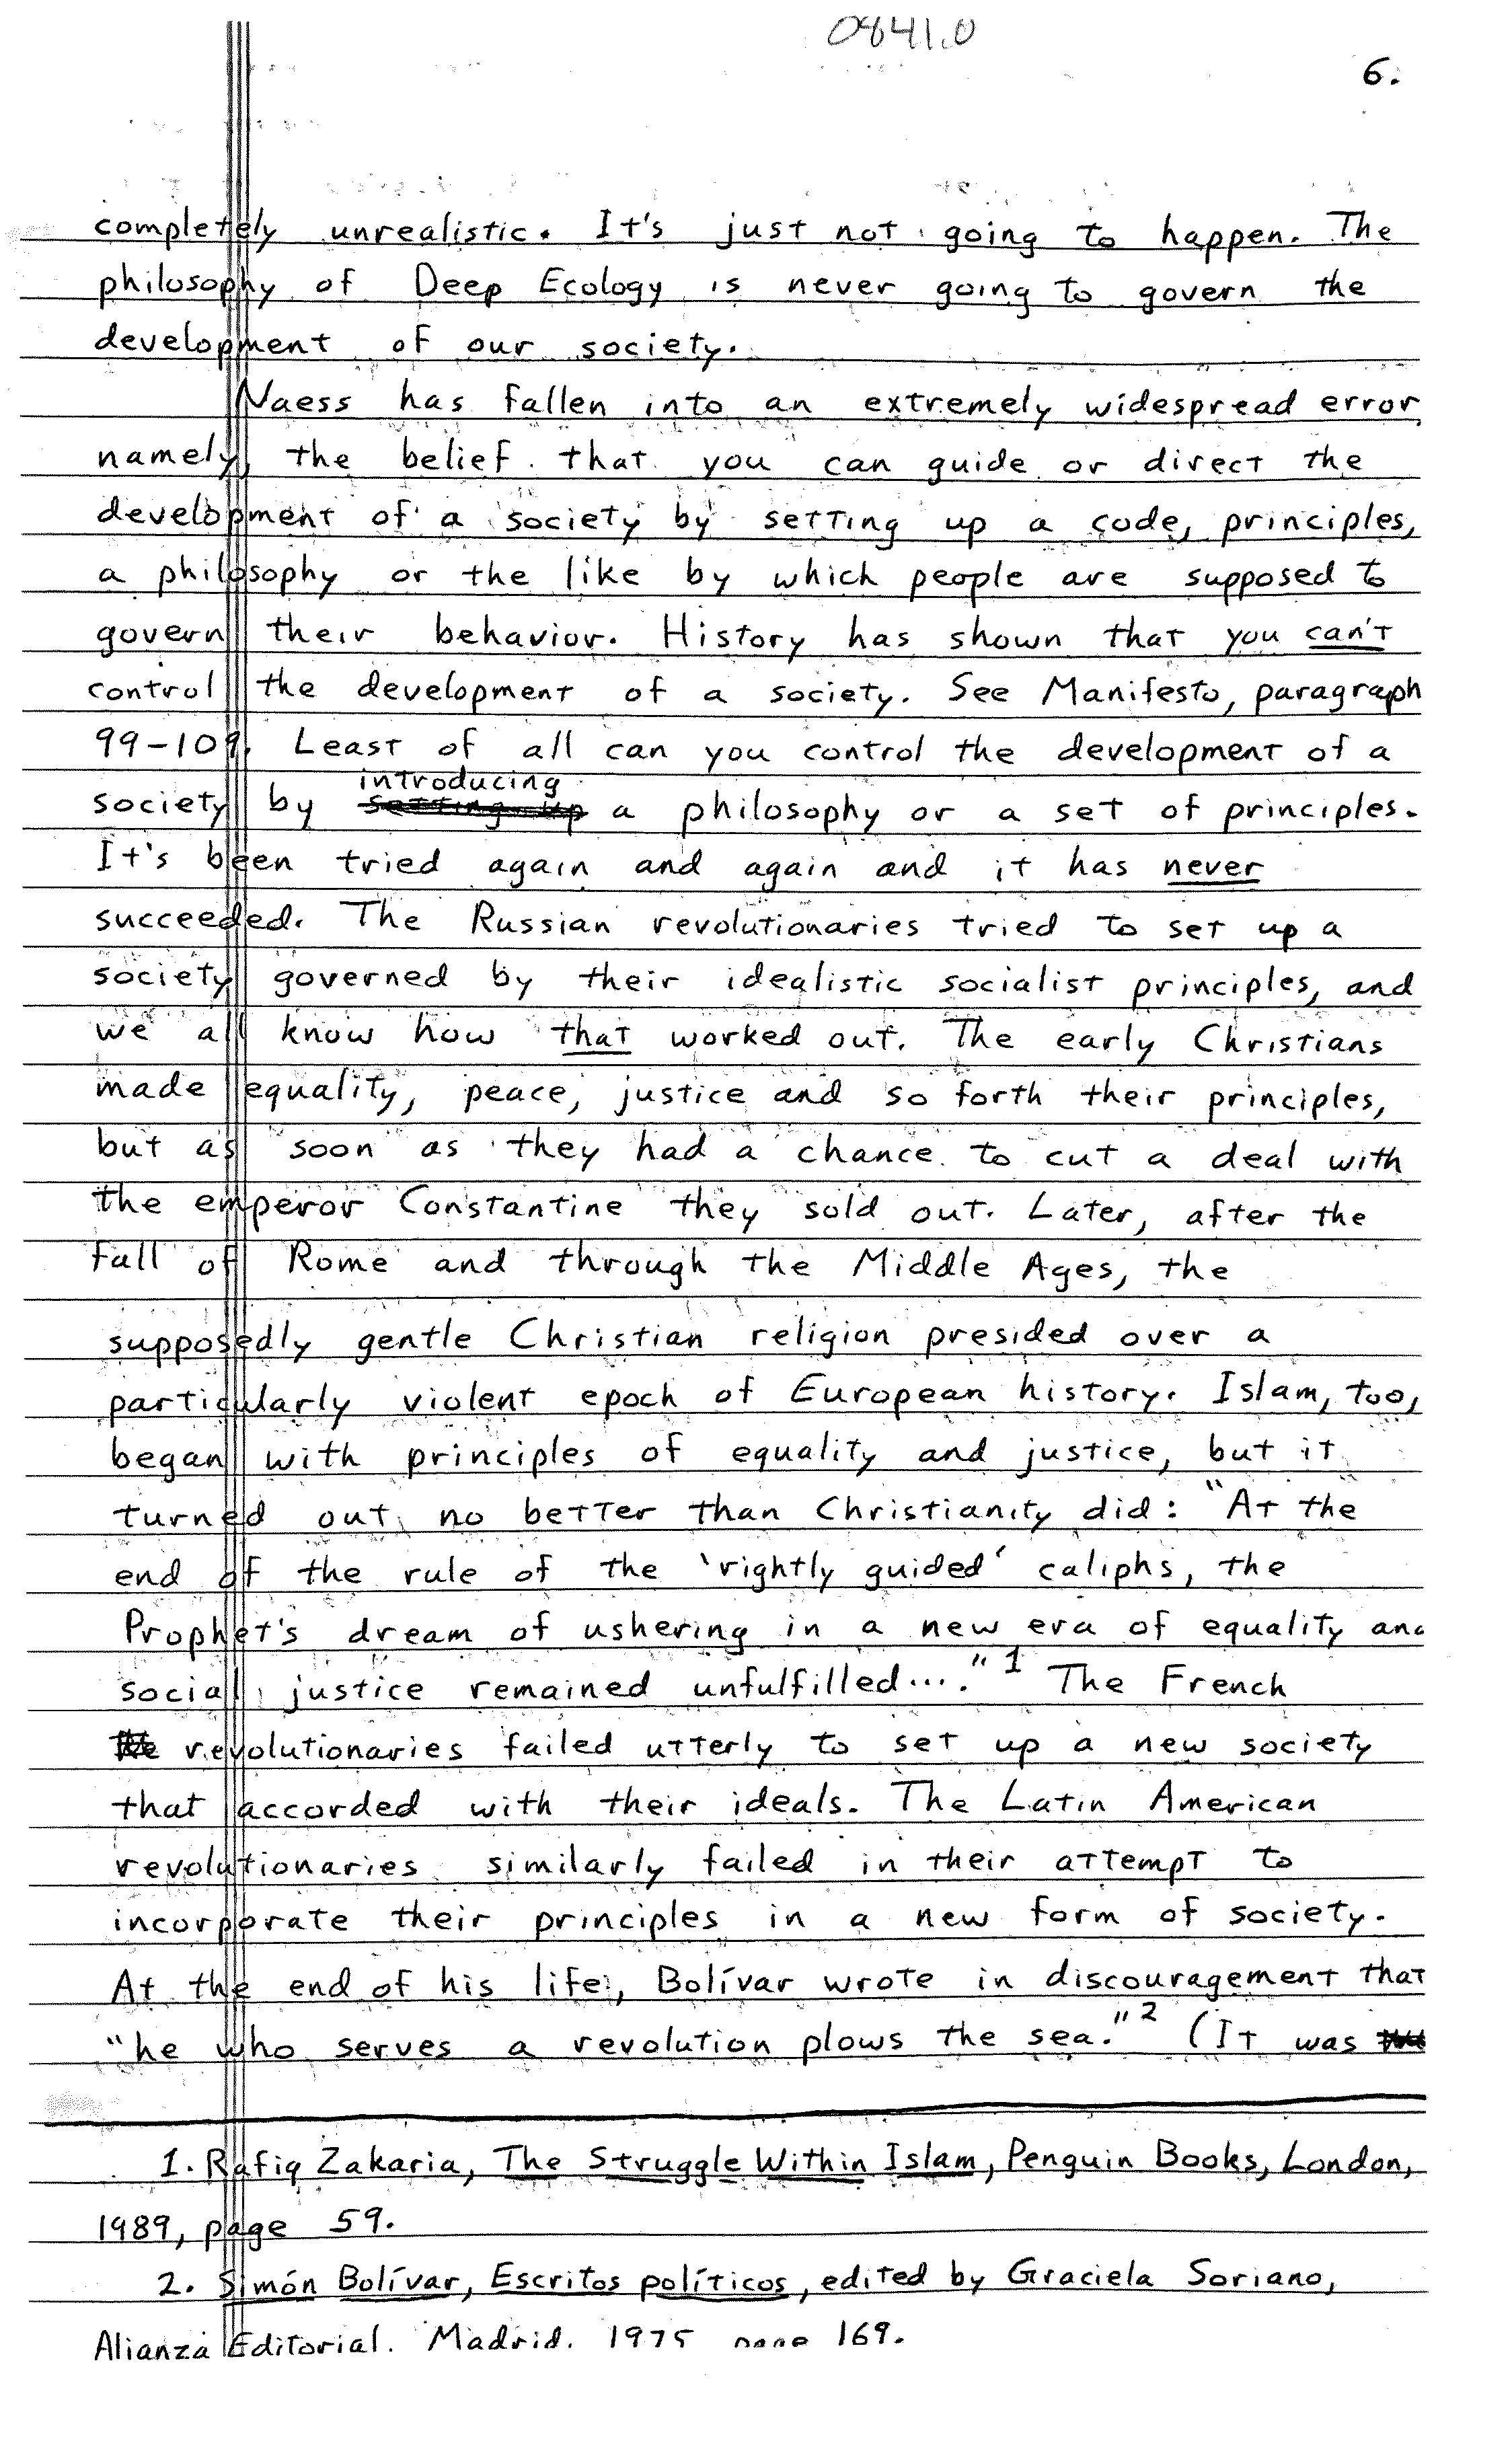 0841.0
6.
completely unrealistic. It's just not going to happen. The
philosophy of Deep Ecology is never going to govern the
development of our society.
Naess has fallen into an extremely widespread error,
namely, the belief that you can guide or direct the
development of a society by setting up a code, principles,
a philosophy or the like by which people are supposed to
govern their behavior. History has shown that you can't
control the development of a society. See Manifesto, paragraph
99-109. Least of all can you control the development of a
introducing
society by setting up a philosophy or a set of principles.
It's been tried again and again and it has never
succeeded. The Russian revolutionaries tried to set up a
society governed by their idealistic socialist principles, and
we all know how that worked out. The early Christians
made equality, peace, justice and so forth their principles,
but as soon as they had a chance to cut a deal with
the emperor Constantine they sold out. Later, after the
fall of Rome and through the Middle Ages, the
supposedly gentle Christian religion presided over a
particularly violent epoch of European history. Islam, too,
began with principles of equality and justice, but it
turned out no better than Christianity did: "At the
end of the rule of the 'rightly guided' caliphs, the
Prophet's dream of ushering in a new era of equality and
social justice remained unfulfilled...." 1 The French
revolutionaries failed utterly to set up a new society
that accorded with their ideals. The Latin American
revolutionaries similarly failed in their attempt to
incorporate their principles in a new form of society.
At the end of his life, Bolívar wrote in discouragement that
"he who serves a revolution plows the sea." 2 (It was
1. Rafiq Zakaria, The Struggle Within Islam, Penguin Books, London,
1989, page 59.
2. Simón Bolívar, Escritos políticos, edited by Graciela Soriano,
Alianza Editorial. Madrid. 1975 page 169.